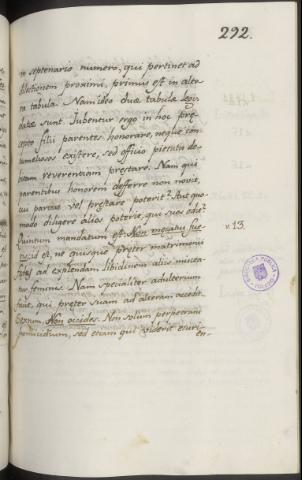 292.
in septenario numero, qui pertinet ad
dilectionem proximi, primus est in alte-
ra tabula. Nam ideo duæ tabulæ legis
datæ sunt. Jubentur ergo in hoc præ-
cepto filii parentes honorare, neque con-
tumeliosos existere, sed officio pietatis de-
bitam reverentiam prestare. Nam qui
parentibus honorem deferre non novit,
cui parcere vel prestare poterit? Aut quo-
modo diligere alios poterit, qui suos odit?
Quintum mandatum est: Non mechatus fue-
ris, id est, ne quisque præter matrimonii
ad explendam libidinem aliis miscea-
tur feminis. Nam specialiter adulterium
facit, qui præter suam ad alteram accedit.
Sextum. Non occides. Non solum perpetrans
homicidium, sed etiam qui viderit esuri-
en-
v. 13.
BIBLIOTECA PUBLICA
TOLEDO